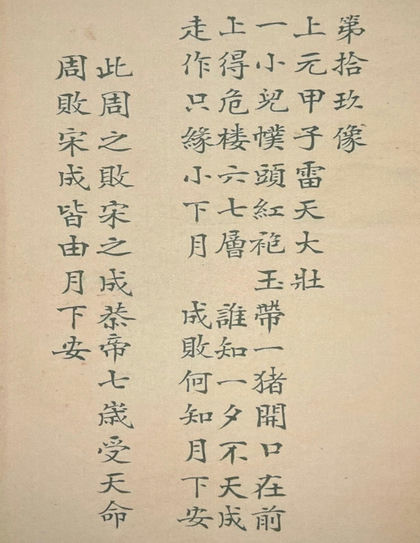 第拾玖像
上元甲子雷天大壯
一小兒幞頭紅袍玉帶一猪開口在前
上得危楼六七層 誰知一夕不天成
走作只緣小下月 成敗何知月下安
此周之敗宋之成恭帝七歲受天命
周敗宋成皆由月下安